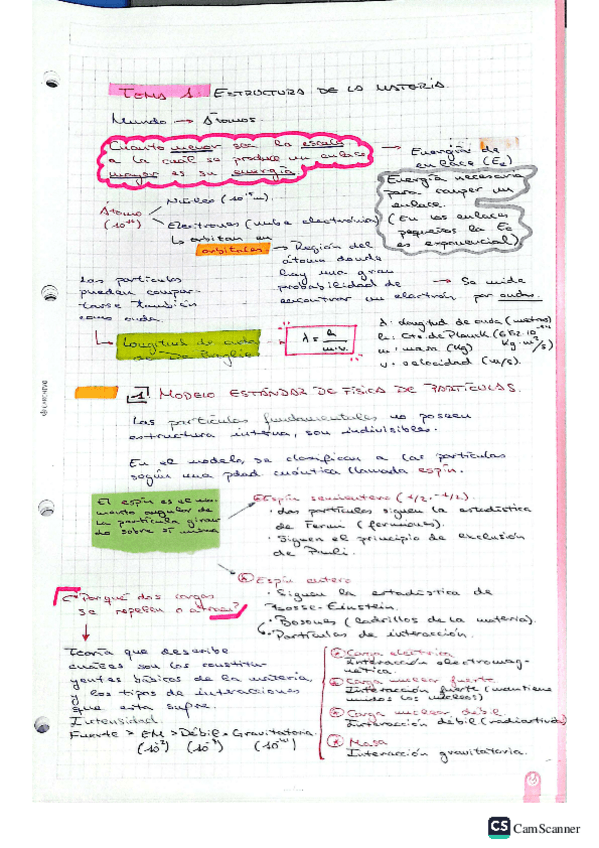 TEMA 1. ESTRUCTURA DE LA MATERIA.
Mundo → Átomos
Cuanto menor sea la escala
a la cual se produce un enlace
mayor es su energía.
→ Energía de
enlace (Ee)
Energía necesaria
para romper un
enlace.
(En los enlaces
pequeños la Ee
es exponencial)
Átomo
Núcleo
Electrones (nube electrónica)
Lo orbitan en
orbitales → Región del
átomo donde
hay una gran
probabilidad de
encontrar un electrón
→ Se mide
por ondas.
Las partículas
pueden compor-
tarse también
como onda.
Longitud de onda
de De Broglie
λ = h / m·v
λ: longitud de onda (metros)
h: Cte. de Planck
m: masa (Kg)
v: velocidad (m/s).
1 MODELO ESTÁNDAR DE FÍSICA DE PARTÍCULAS.
Las partículas fundamentales no poseen
estructura interna, son indivisibles.
En el modelo, se clasifican a las partículas
según una pdad. cuántica llamada espín.
El espín es el mo-
mento angular de
la partícula giran-
do sobre sí misma
Espín semientero
· Las partículas siguen la estadística
de Fermi (fermiones).
· Siguen el principio de exclusión
de Pauli.
Espín entero
· Siguen la estadística de
Bosse-Einstein.
· Bosones (ladrillos de la materia).
· Partículas de interacción.
¿Porqué dos cargas
se repelen o atraen?
Teoría que describe
cuáles son los constitu-
yentes básicos de la materia,
y los tipos de interacciones
que esta sufre.
Intensidad.
Fuerte > EM > Débil > Gravitatoria.
Carga eléctrica
Interacción electromag-
nética.
Carga nuclear fuerte
Interacción fuerte (mantiene
unidos los núcleos)
Carga nuclear débil
Interacción débil (radiactividad)
Masa
Interacción gravitatoria.
CS CamScanner